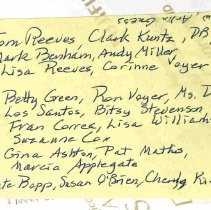 Tom Reeves Clark Kuntz, DB
Mark Benham, Andy Miller,
Lisa Reeves, Corinne Voyer
Betty Green, Ron Voyer, Ms. D
Los Santos, Bitsy Stevenson,
Fran Correa, Lisa William
Suzanne Cox
Gina Ashton, Pat Mathis,
Marcia Applegate
Bapp, Susan O'Brien, Cheryl